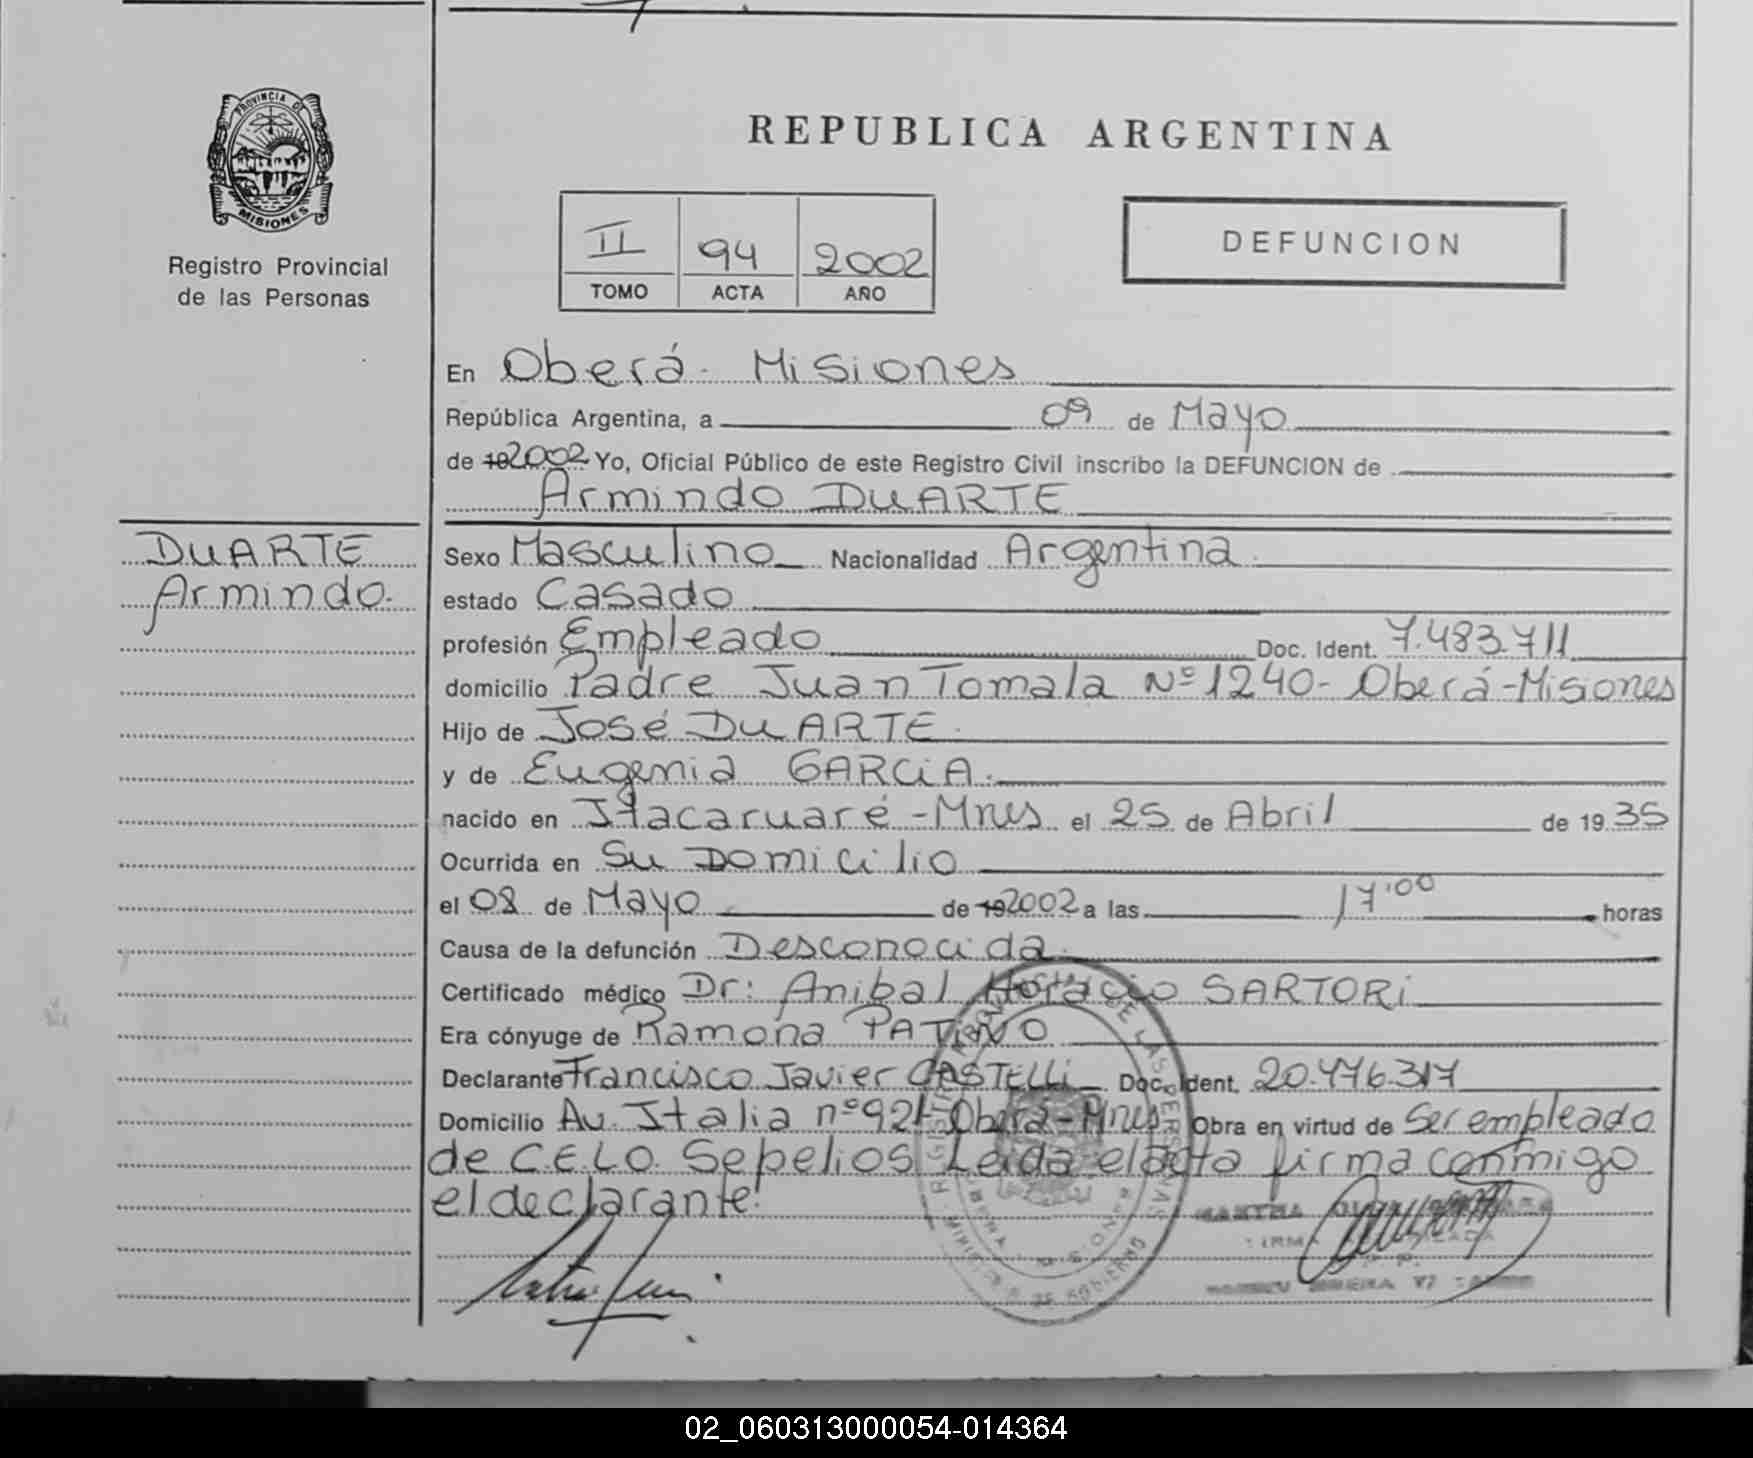 PROVINCIA DE
MISIONES
Registro Provincial
de las Personas
REPUBLICA ARGENTINA
II 94 2002
TOMO ACTA AÑO
DEFUNCION
En Oberá - Misiones
República Argentina, a 09 de Mayo
de 19 2002 Yo, Oficial Público de este Registro Civil inscribo la DEFUNCION de
Armindo DUARTE
DUARTE
Armindo.
Sexo Masculino Nacionalidad Argentina.
estado Casado
profesión Empleado Doc. Ident. 7.483.711
domicilio Padre Juan Tomala Nº 1240- Oberá-Misiones
Hijo de José DUARTE.
y de Eugenia GARCiA.
nacido en Itacaruaré - Mnes el 25 de Abril de 1935
Ocurrida en Su Domicilio
el 08 de Mayo de 19 2002 a las 17:00 horas
Causa de la defunción Desconocida.
Certificado médico Dr: Anibal Horacio SARTORi
Era cónyuge de Ramona PATIÑO
Declarante Francisco Javier CASTELLi Doc. Ident. 20.476.317
Domicilio Av. Italia nº 921- Oberá - Mnes Obra en virtud de Ser empleado
de C.E.L.O. Sepelios Leida el acta firma conmigo
el declarante.
02_060313000054-014364